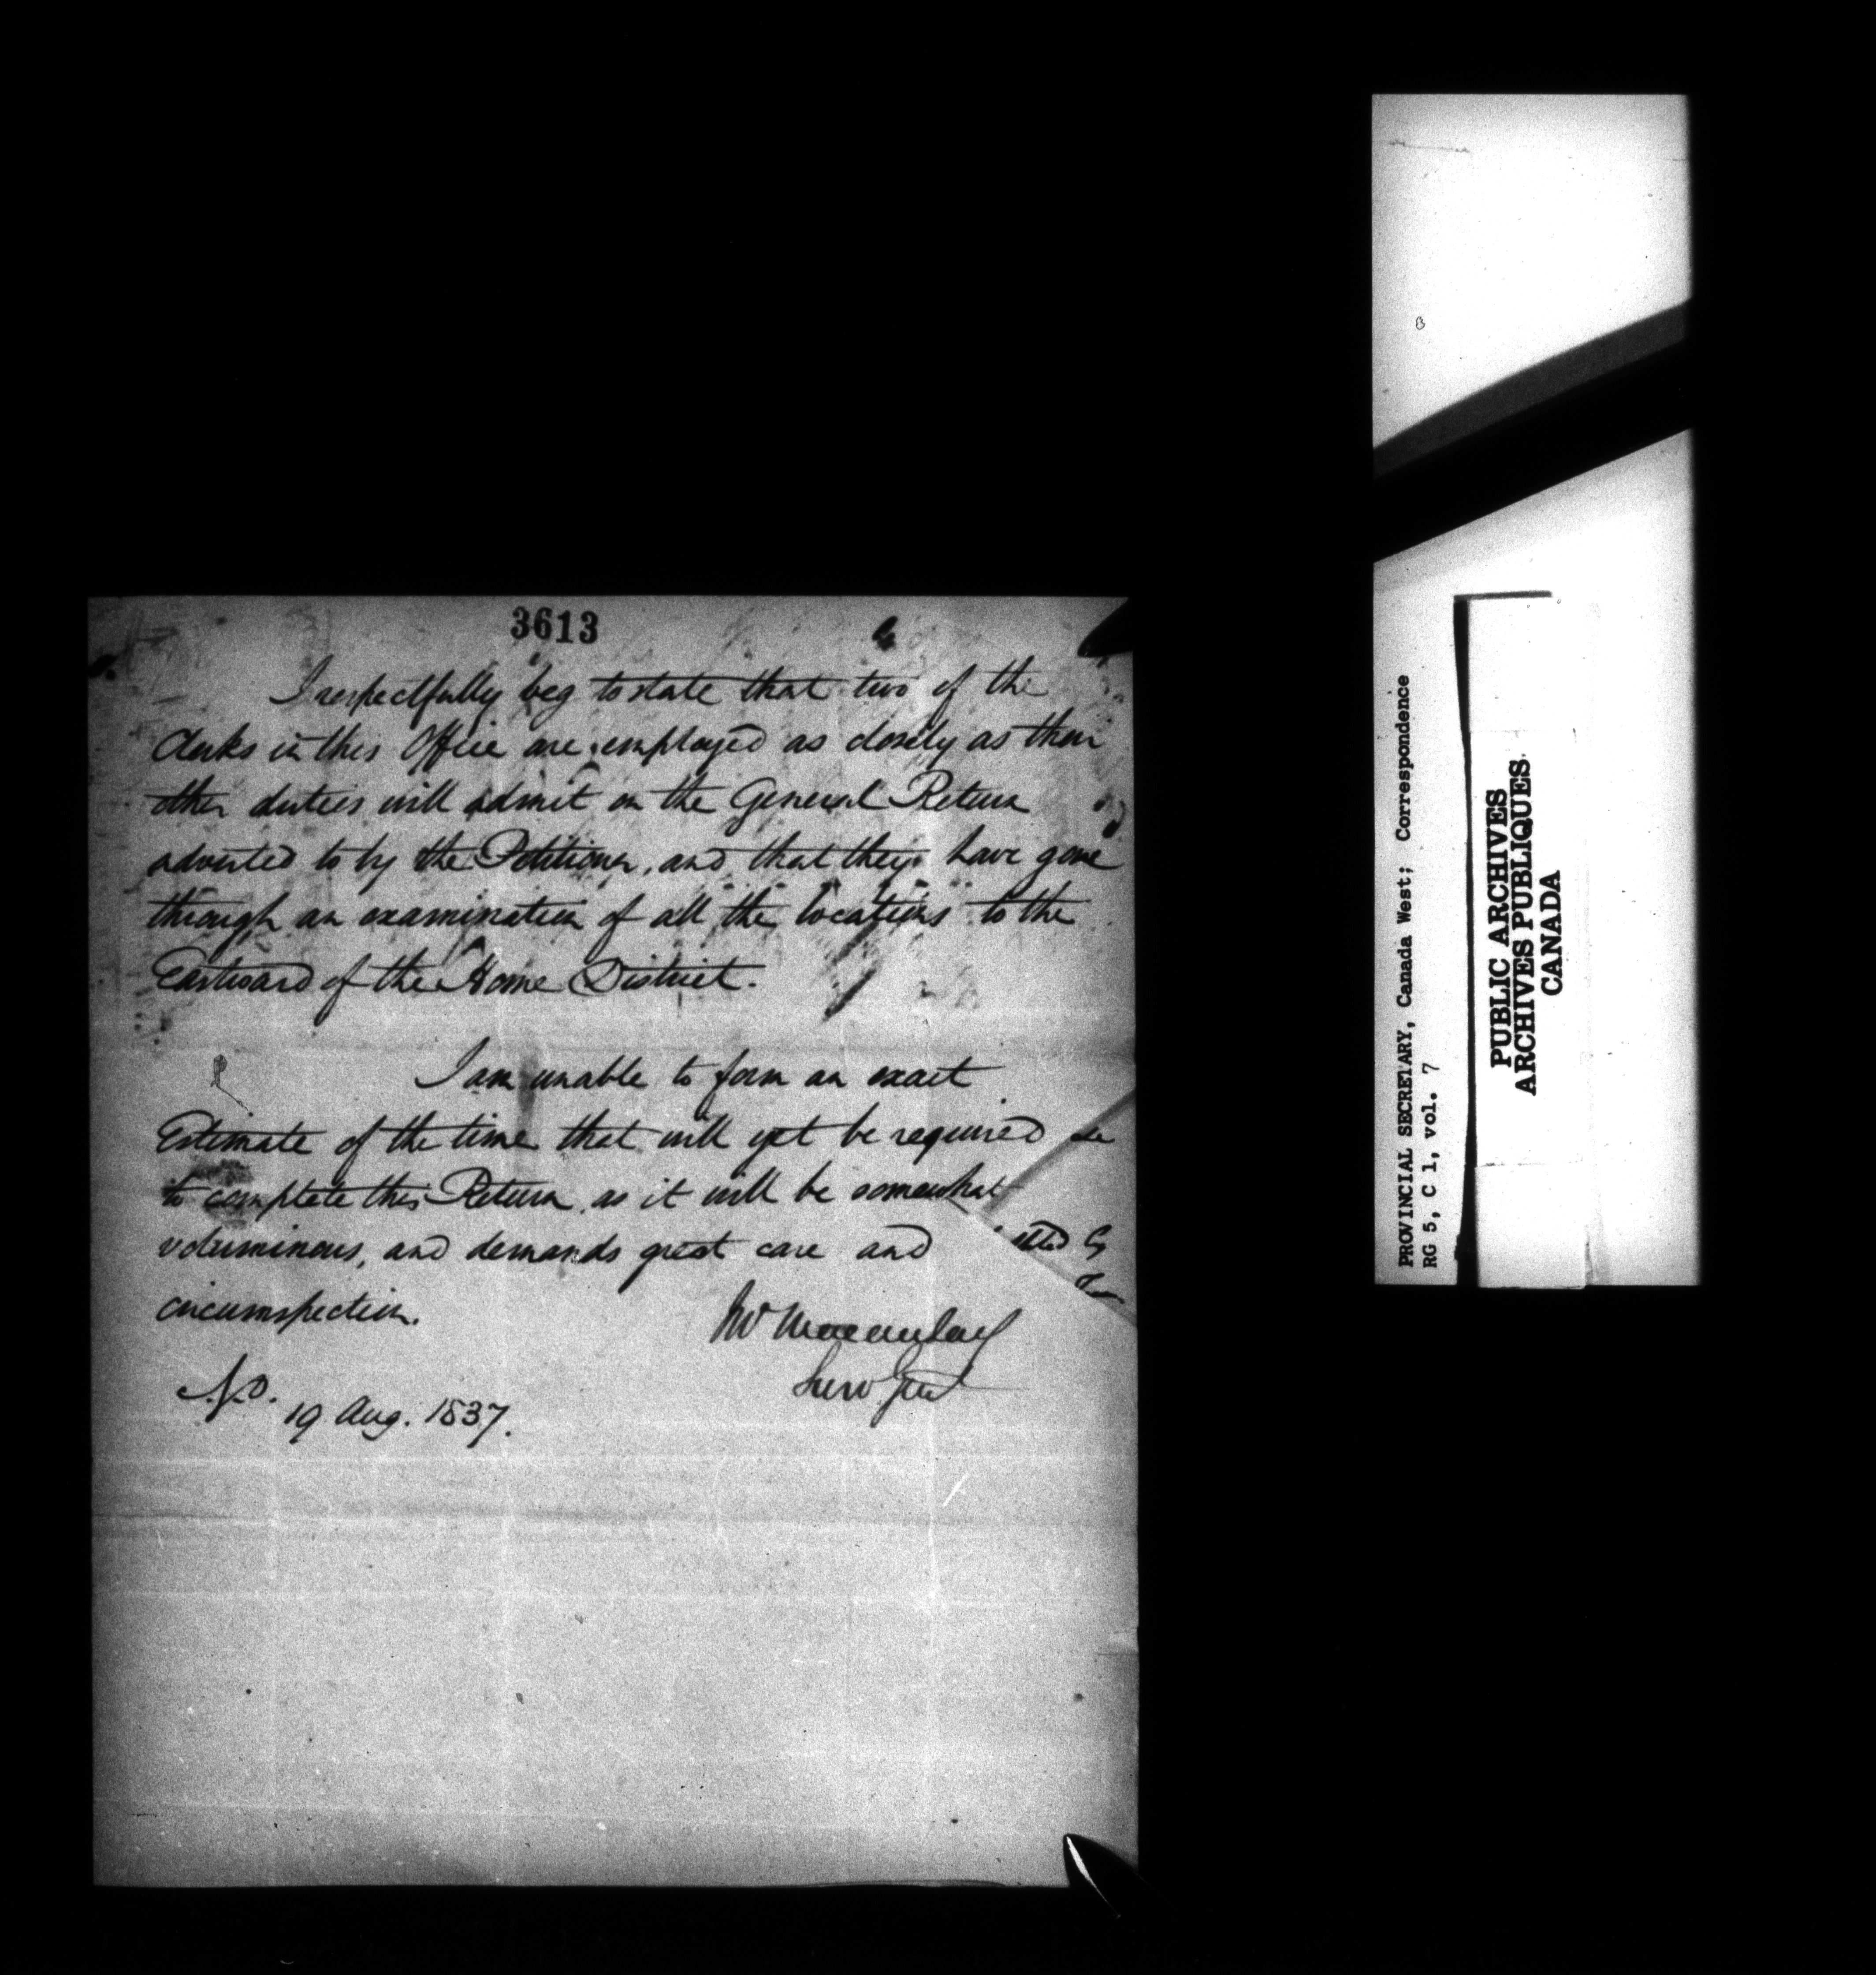 3613
I respectfully beg to state that two of the
Clerks in this Office are employed as closely as their
other duties will admit on the General Return
adverted to by the Petitioner, and that they have gone
through an examination of all the locations to the
Eastward of the Home District.
I am unable to form an exact
Estimate of the time that will yet be required
to complete this Return, as it will be somewhat
voluminous, and demands great care and
circumspection.
Jn Macaulay
Surv Genl
19 Aug. 1837.
PROVINCIAL SECRETARY, Canada West; Correspondence
RG 5, C 1, vol. 7
PUBLIC ARCHIVES
ARCHIVES PUBLIQUES
CANADA